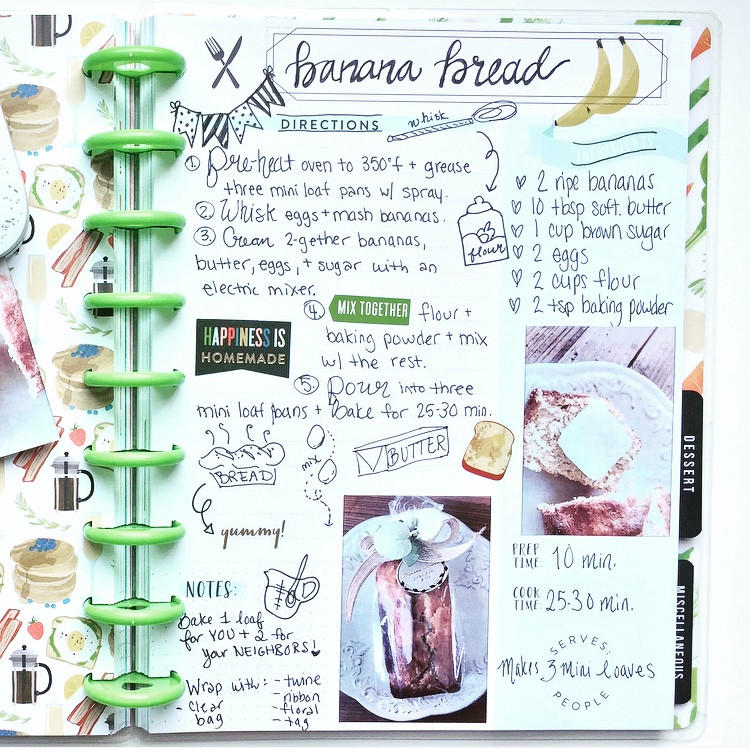 banana bread
DIRECTIONS
whisk
① Pre-heat oven to 350°f + grease
three mini loaf pans w/ spray.
② Whisk eggs + mash bananas.
③ Cream 2-gether bananas,
butter, eggs, + sugar with an
electric mixer.
④ MIX TOGETHER flour +
baking powder + mix
w/ the rest.
⑤ Pour into three
mini loaf pans + bake for 25-30 min.
flour
HAPPINESS IS
HOMEMADE
BREAD
mix
BUTTER
yummy!
NOTES:
Bake 1 loaf
for YOU + 2 for
your NEIGHBORS!
Wrap with:
- clear
bag
- twine
- ribbon
- floral
- tag
♡ 2 ripe bananas
♡ 10 tbsp soft. butter
♡ 1 cup brown sugar
♡ 2 eggs
♡ 2 cups flour
♡ 2 tsp baking powder
PREP
TIME: 10 min.
COOK
TIME: 25-30 min.
SERVES:
Makes 3 mini loaves
PEOPLE
DESSERT
MISCELLANEOUS